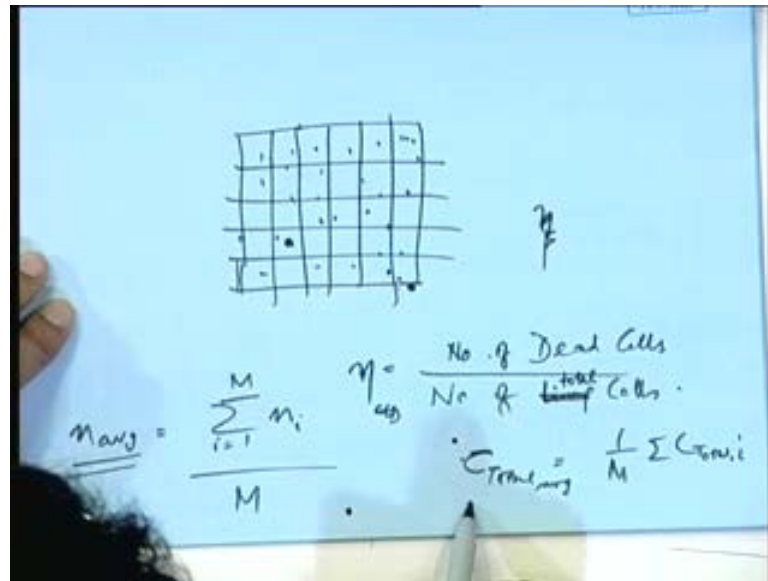 η = No. of Dead Cells / No of total Cells.
n avg = M Σ i=1 n i / M
C Total, avg = 1/M Σ C Total, i